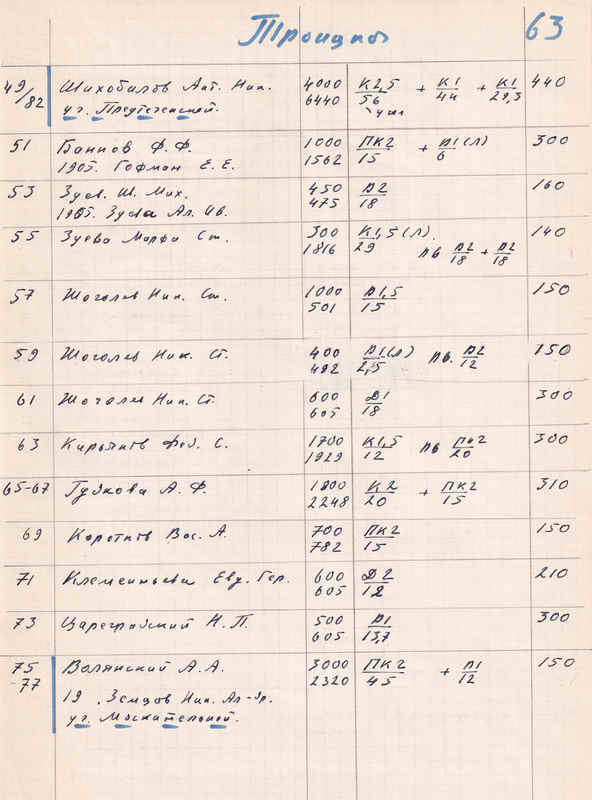 Троицкая 63
49/82 Шихобалов Ант. Ник. 4000 К2,5/56 + К1/44 + К1/29,3 440
уг. Предтеченской. 6440
51 Баннов Ф. Ф. 1000 ПК2/15 + Д1(Л)/6 300
1905. Гофман Е. Е. 1562
53 Зуев. Ш. Мих. 450 Д2/18 160
1905. Зуева Ал. Ив. 475
55 Зуева Марфа Ст. 300 К1,5(Л)/29 пв Д2/18 + Д2/18 140
1816
57 Шоголев Ник. Ст. 1000 Д1,5/15 150
501
59 Шоголев Ник. Ст. 400 Д1(Л)/2,5 пв. Д2/12 150
492
61 Ник. Ст. 600 Д1/18 300
605
63 Фед. С. 1700 К1,5/12 пв ПК2/20 300
1929
65-67 Гудкова А. Ф. 1800 К2/20 + ПК2/15 310
2248
69 Коротков Вас. А. 700 ПК2/15 150
782
71 Клементьева Евд. Гер. 600 Д2/12 210
605
73 Цареградский Н. П. 500 Д1/13,7 300
605
75-77 Волянский А. А. 3000 ПК2/45 + Д1/12 150
2320
19 . Земцов Ник. Ал-др.
уг. Москательной.